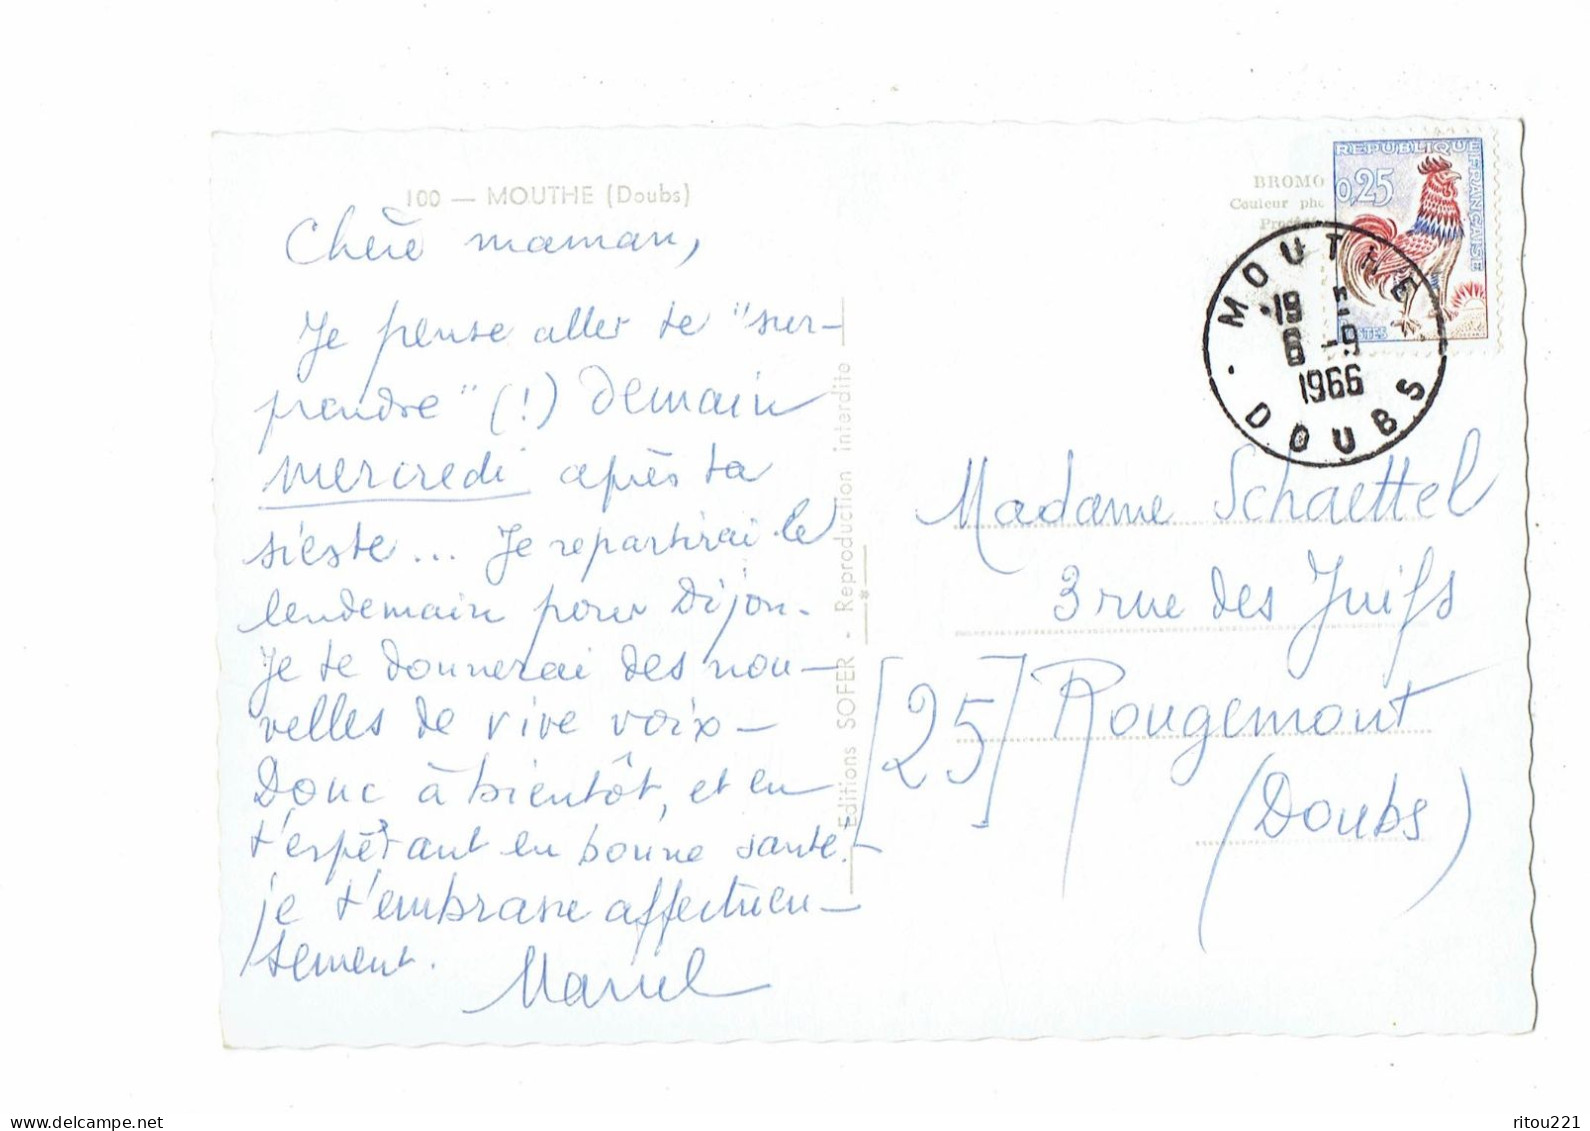 100 — MOUTHE (Doubs)
Chère maman,
Je pense aller te "sur-
prendre" (!) demain
mercredi après ta
sieste... Je repartirai le
lendemain pour Dijon.
Je te donnerai des nou-
velles de vive voix -
Donc à bientôt, et en
t'espérant en bonne santé.
je t'embrasse affectueu-
sement.
Marcel
Editions SOFER - Reproduction interdite
BROMO
Couleur
REPUBLIQUE
FRANÇAISE
0,25
MOUTHE
19 H
6 -9
1966
DOUBS
Madame Schaettel
3 rue des Juifs
[25] Rougemont
(Doubs)
ritou221